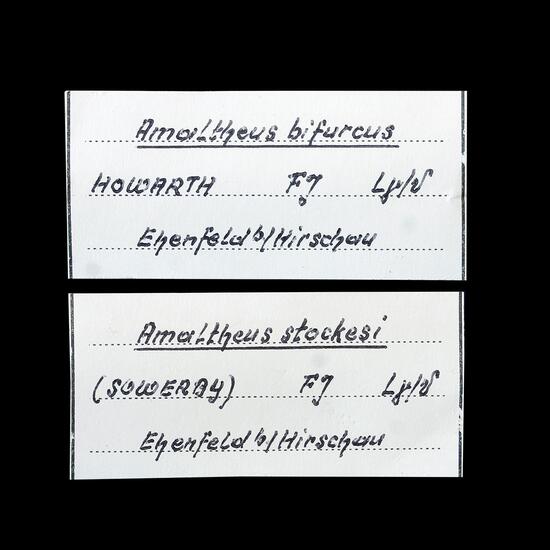 Amaltheus bifurcus
HOWARTH Fj Lγ/δ
Ehenfeld b/Hirschau
Amaltheus stockesi
(SOWERBY) Fj Lγ/δ
Ehenfeld b/Hirschau